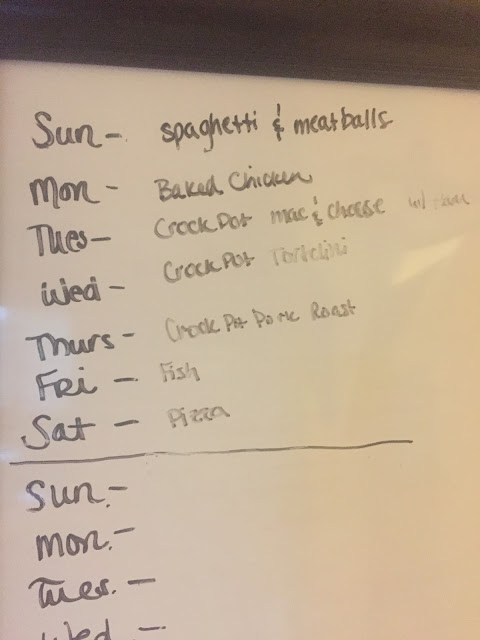 Sun - spaghetti & meatballs
Mon - Baked Chicken
Tues - Crock Pot mac & cheese w/
Wed - Crock Pot Tortelini
Thurs - Crock Pot Pork Roast
Fri - Fish
Sat - Pizza
Sun. -
Mon. -
Tues. -
Wed -